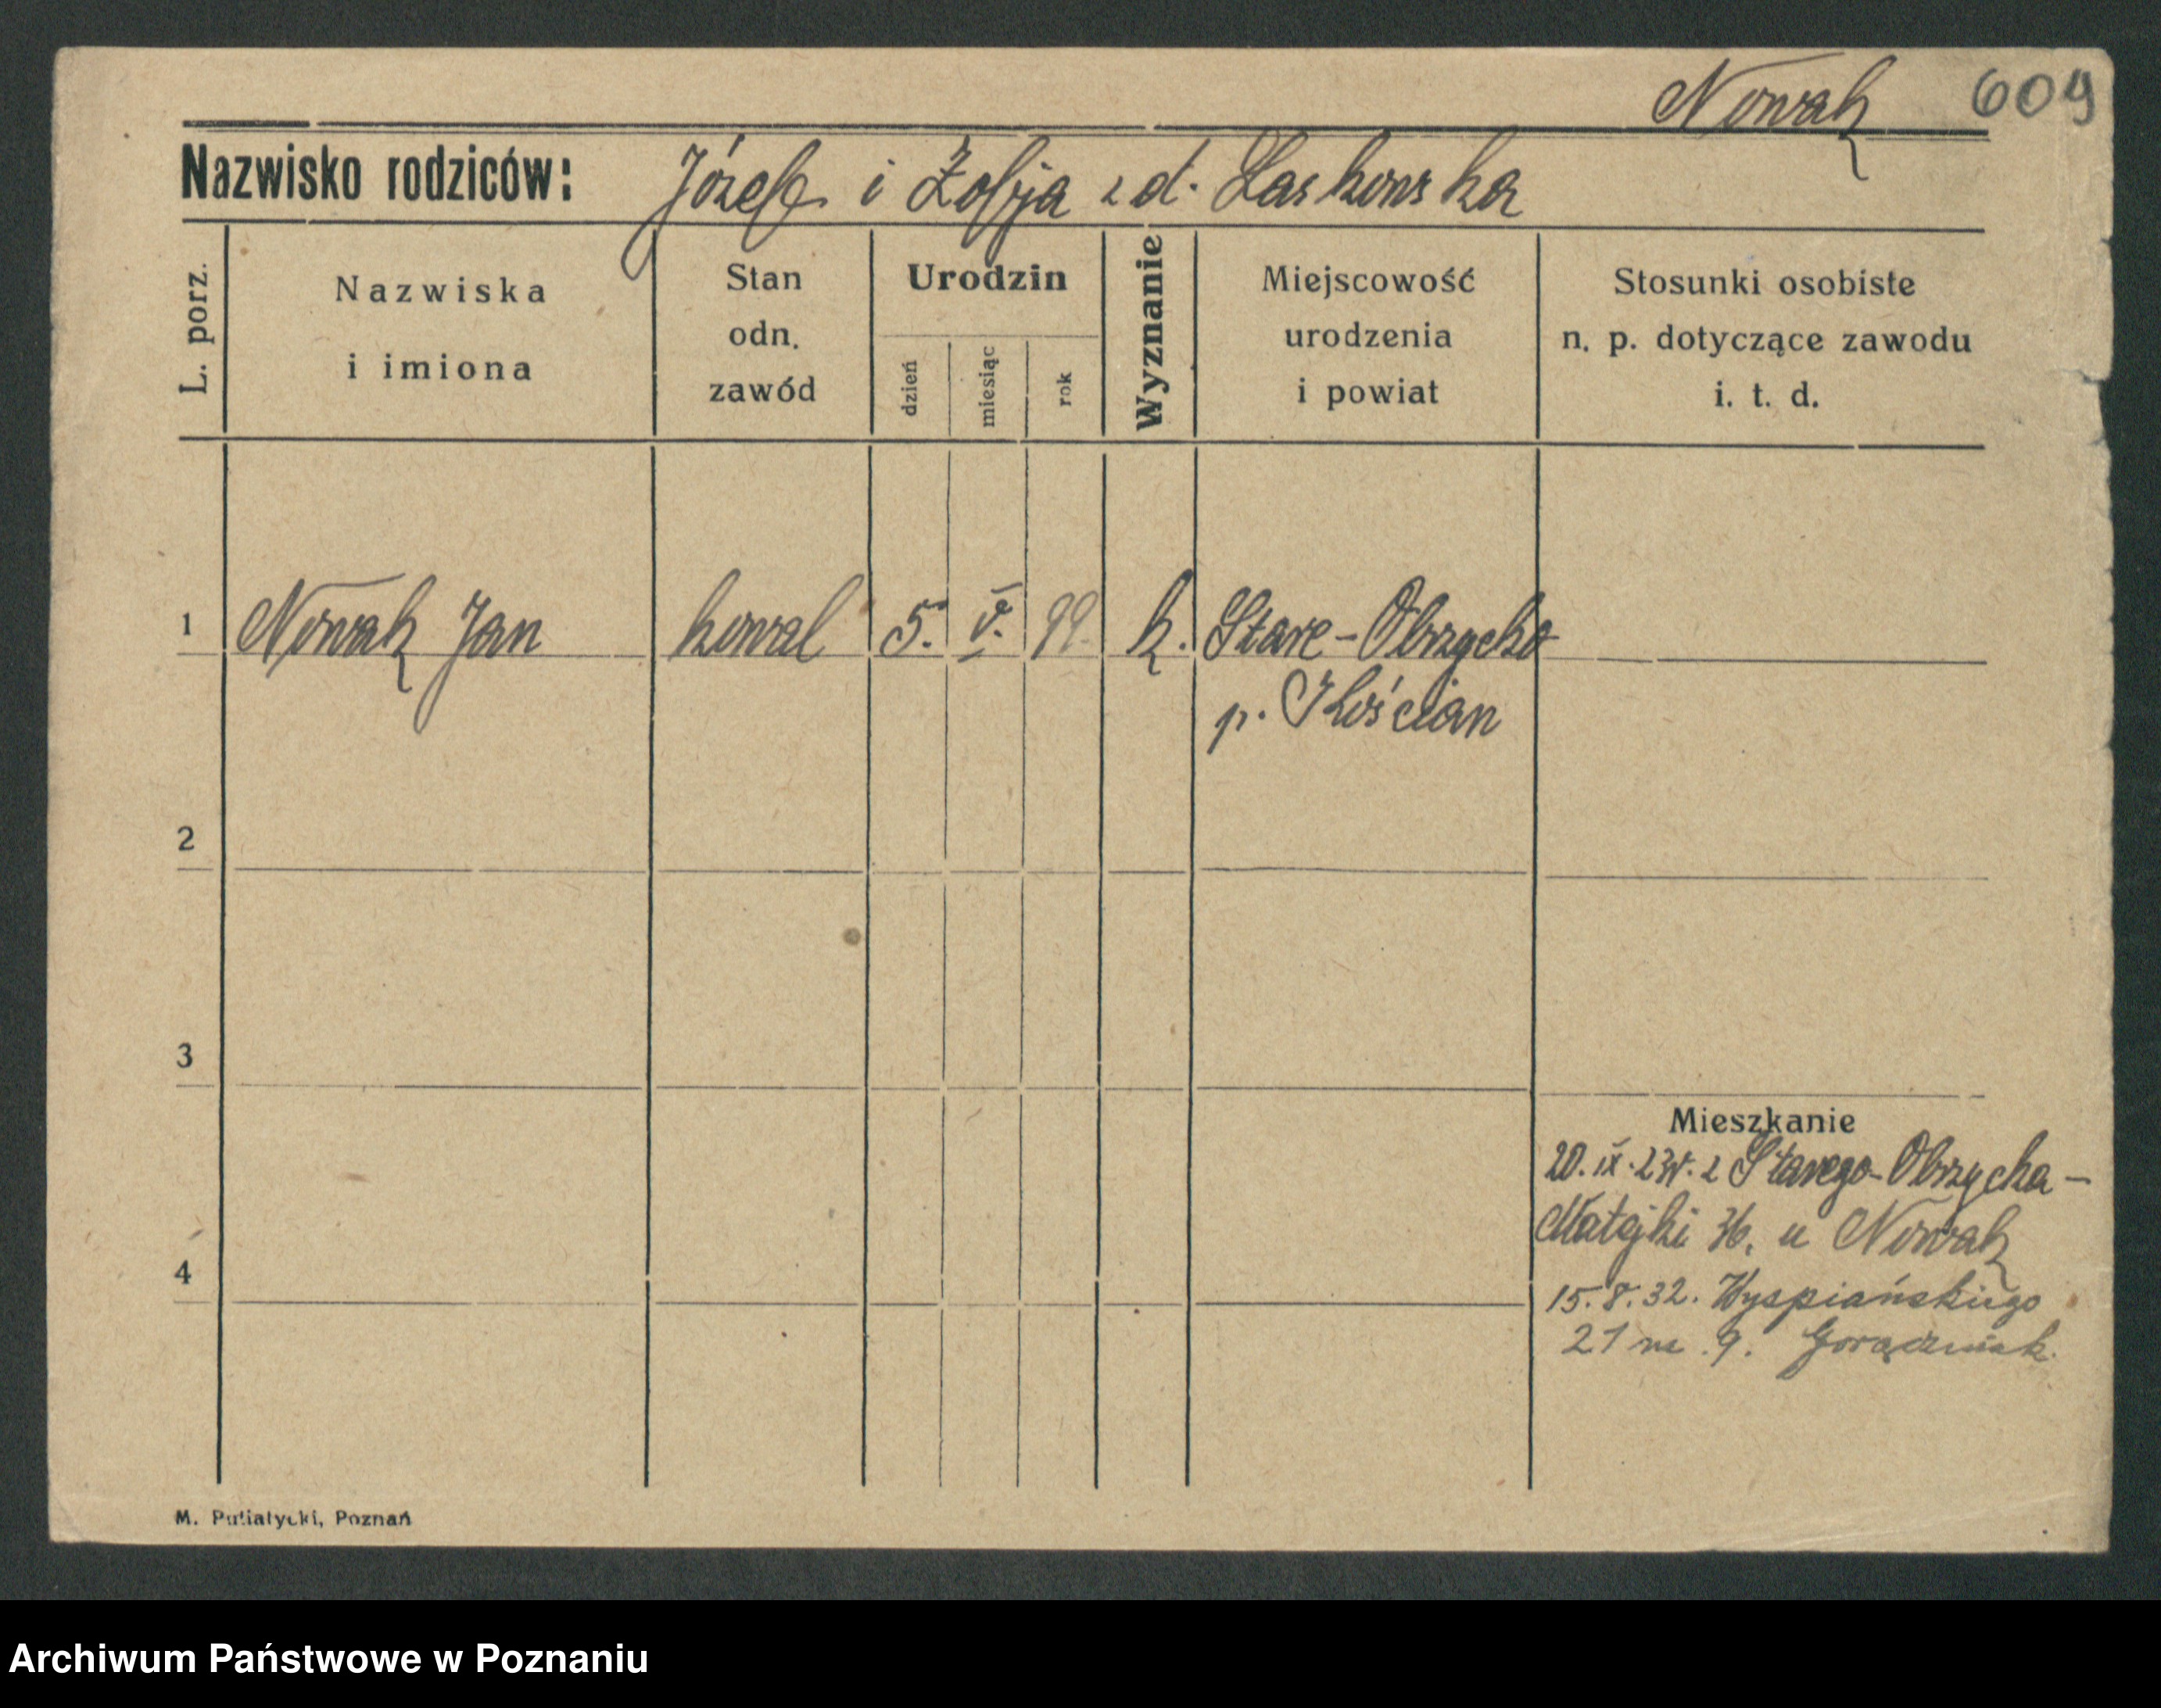 Nowak 609
Nazwisko rodziców: Józef i Zofja z d. Laskowska
L. porz.
Nazwiska i imiona
Stan odn. zawód
Urodzin
dzień
miesiąc
rok
Wyznanie
Miejscowość urodzenia i powiat
Stosunki osobiste n. p. dotyczące zawodu i. t. d.
1 Nowak Jan kowal 5. V. 99. k. Stare-Obrzycko
p. Kościan
2
3
Mieszkanie
20. IX. 23r. z Starego-Obrzycka -
Matejki 36. u Nowak
4
15.8.32. Wyspiańskiego
21 m. 9. Gorączniak.
M. Putiatycki, Poznań
Archiwum Państwowe w Poznaniu